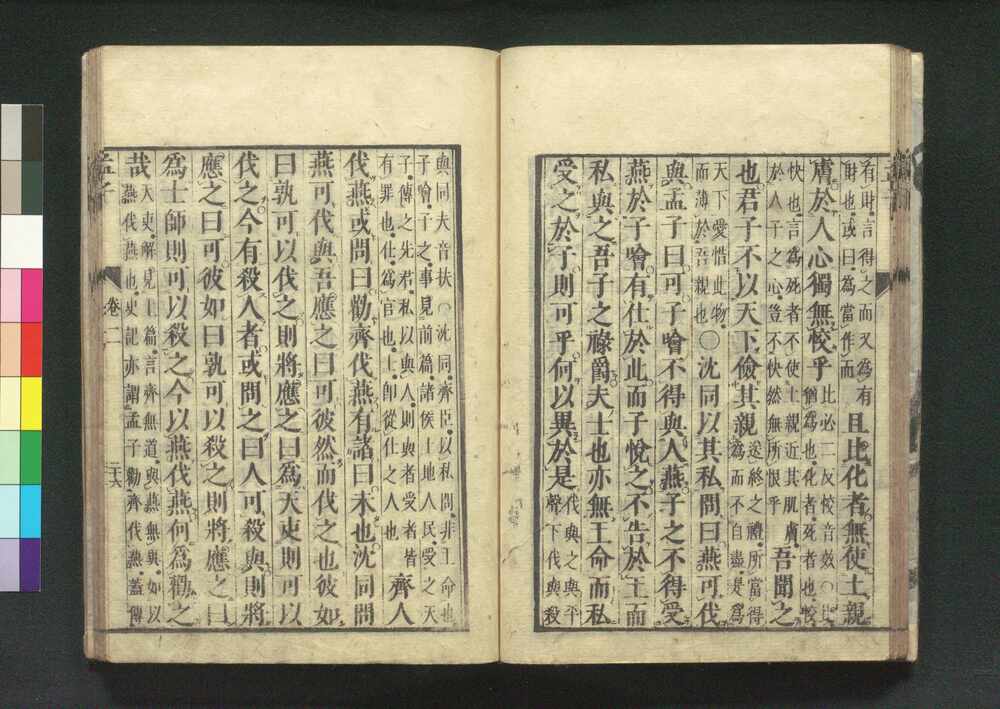 有財言得之而又爲有
財也或曰爲當作而
且比化者無使土親
膚於人心獨無恔乎
比必二反恔音效○比
猶爲也化者死者也恔
快也言爲死者不使土親近其肌膚
於人子之心豈不快然無所恨乎
吾聞之
也君子不以天下儉其親
送終之禮所當得
爲而不自盡是爲
天下愛惜此物
而薄於吾親也
○沈同以其私問曰燕可伐
與孟子曰可子噲不得與人燕子之不得受
燕於子噲有仕於此而子悅之不告於王而
私與之吾子之祿爵夫士也亦無王命而私
受之於子則可乎何以異於是
伐與之與平
聲下伐與殺
與同夫音扶○沈同齊臣以私問非王命也
子噲子之事見前篇諸侯土地人民受之天
子傳之先君私以與人則與者受者皆
有罪也仕爲官也士卽從仕之人也
齊人
伐燕或問曰勸齊伐燕有諸曰未也沈同問
燕可伐與吾應之曰可彼然而伐之也彼如
曰孰可以伐之則將應之曰爲天吏則可以
伐之今有殺人者或問之曰人可殺與則將
應之曰可彼如曰孰可以殺之則將應之曰
爲士師則可以殺之今以燕伐燕何爲勸之
哉
天吏解見上篇言齊無道與燕無異如以
燕伐燕也史記亦謂孟子勸齊伐燕蓋傳
孟子
卷二
二十六